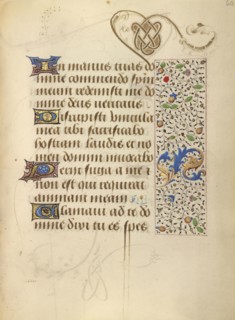 In manus tuas do
mine commendo spiri
meum redemisti me do
mine deus veritatis
Dirupisti vincula
mea tibi sacrificabo
hostiam laudis et no
men domini invocabo
Periit fuga a me et
non est qui requirat
animam meam
Clamavi ad te do
mine dixi tu es spes